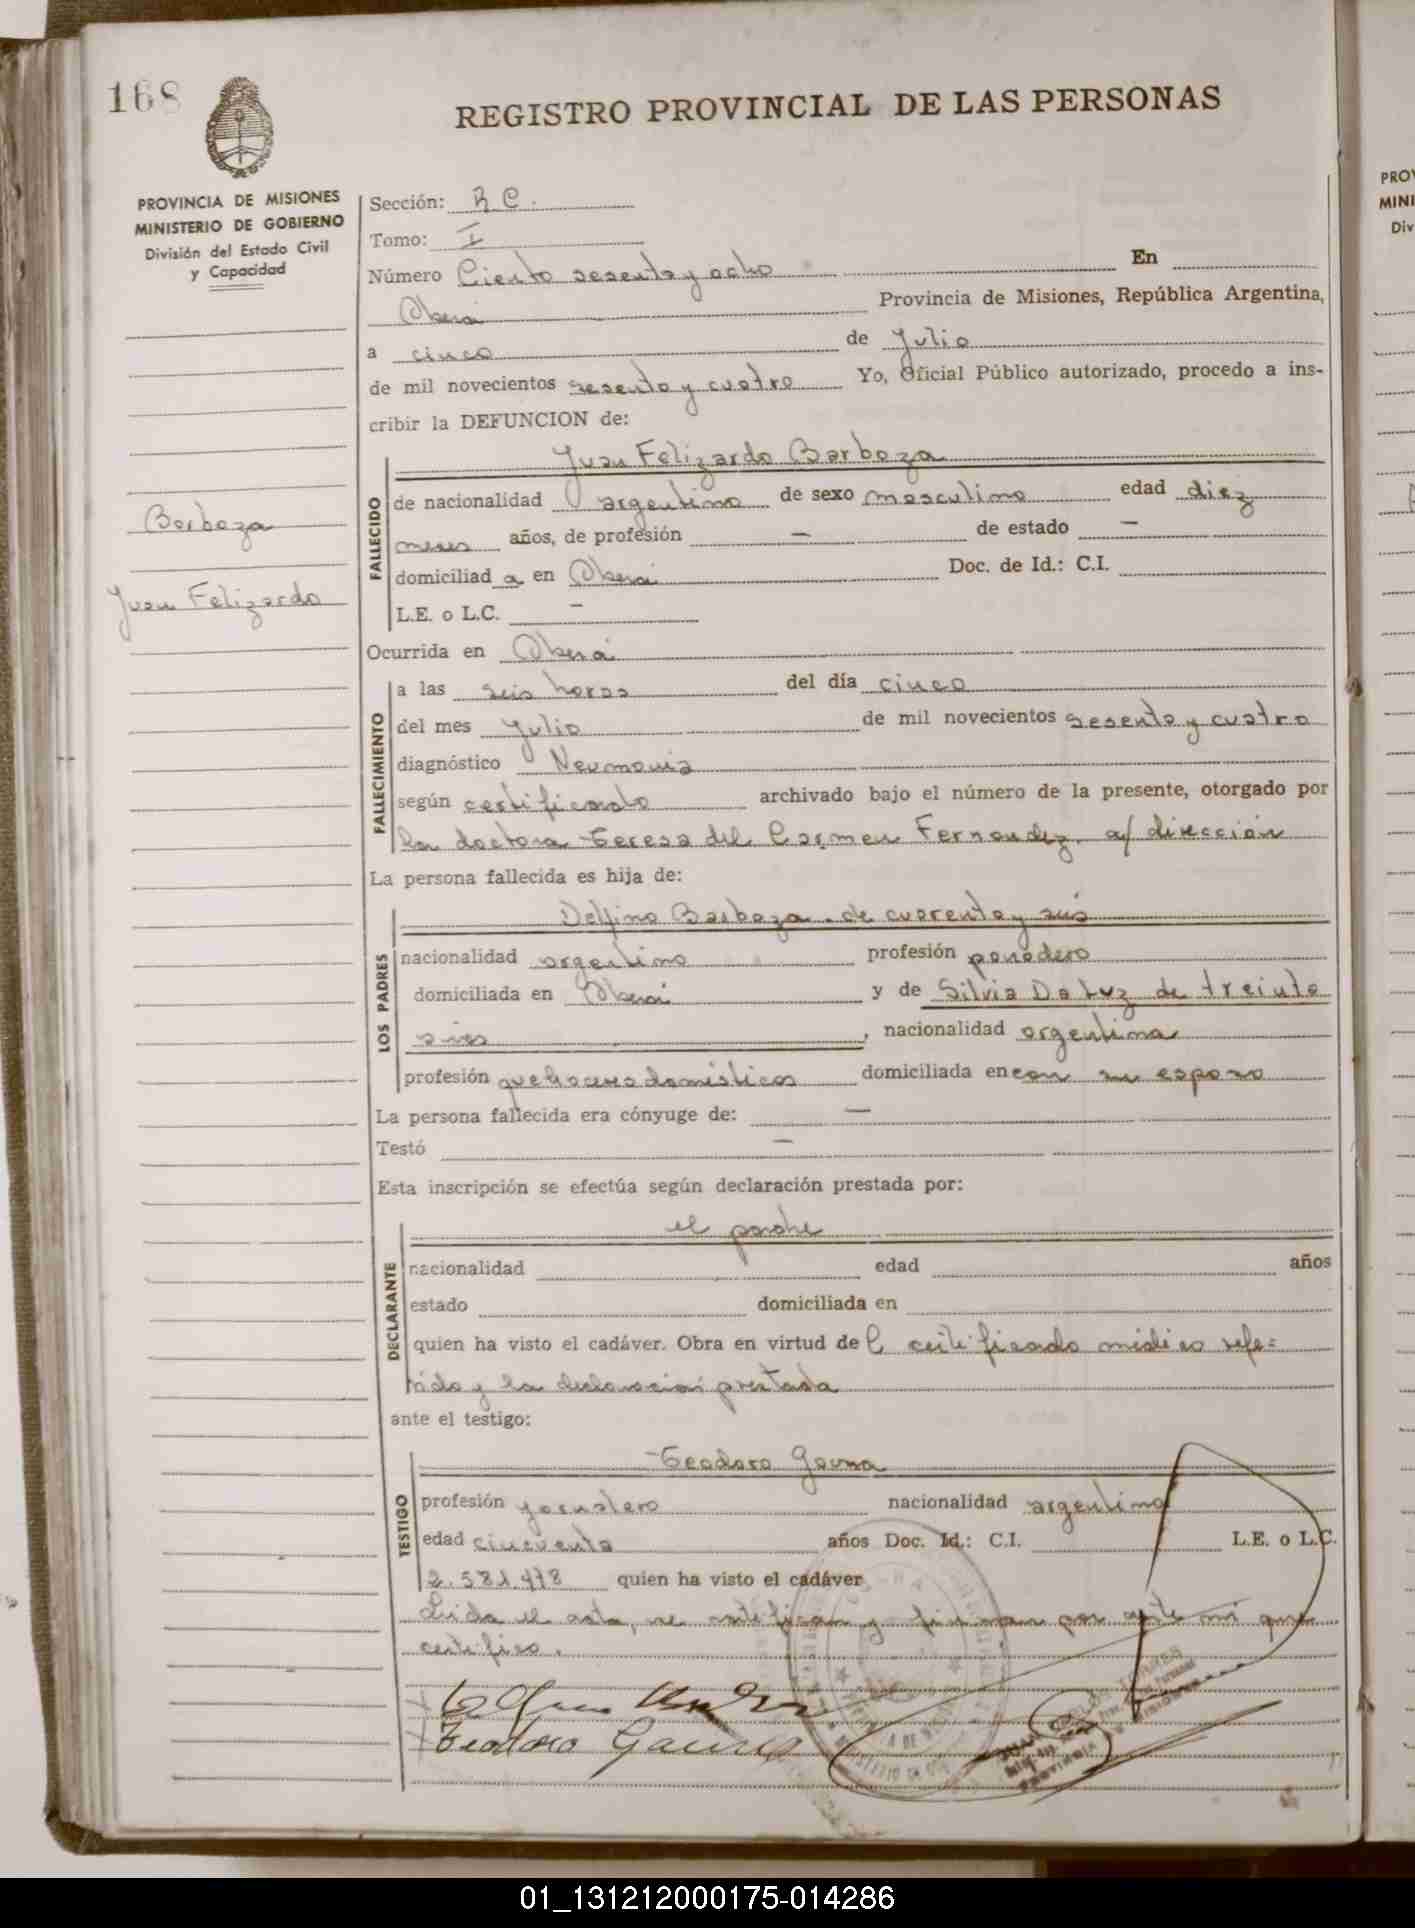 168
REGISTRO PROVINCIAL DE LAS PERSONAS
PROVINCIA DE MISIONES
MINISTERIO DE GOBIERNO
División del Estado Civil
y Capacidad
Barboza
Juan Felizardo
Sección: R C.
Tomo: I
Número Ciento sesenta y ocho En
Oberá Provincia de Misiones, República Argentina,
a cinco de Julio
de mil novecientos sesenta y cuatro Yo, Oficial Público autorizado, procedo a ins-
cribir la DEFUNCION de:
FALLECIDO
Juan Felizardo Barboza
de nacionalidad argentino de sexo masculino edad diez
meses años, de profesión — de estado —
domiciliad a en Oberá Doc. de Id.: C.I.
L.E. o L.C. —
Ocurrida en Oberá
FALLECIMIENTO
a las seis horas del día cinco
del mes Julio de mil novecientos sesenta y cuatro
diagnóstico Neumonia
según certificado archivado bajo el número de la presente, otorgado por
la doctora Teresa del Carmen Fernandez. a/ dirección
La persona fallecida es hija de:
LOS PADRES
Delfino Barboza. de cuarenta y seis
nacionalidad argentino profesión panadero
domiciliada en Oberá y de Silvia Da Luz de treinta
años, nacionalidad argentina
profesión quehaceres domésticos domiciliada en con su esposo
La persona fallecida era cónyuge de: —
Testó —
Esta inscripción se efectúa según declaración prestada por:
DECLARANTE
el padre
nacionalidad edad años
estado domiciliada en
quien ha visto el cadáver. Obra en virtud de l certificado médico refe=
rido y la declaración prestada
ante el testigo:
TESTIGO
Teodoro Gauna
profesión jornalero nacionalidad argentino
edad cincuenta años Doc. Id.: C.I. L.E. o L.C.
2.581.478 quien ha visto el cadáver
Leida el acta, se ratifican y firman por ante mi que
certifico.
Teodoro Gauna
PRO
MINI
Div
01_131212000175-014286